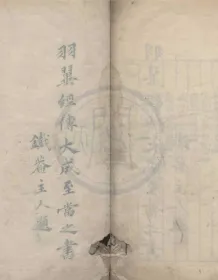 羽翼經傳大成至當之書
鐵菴主人題